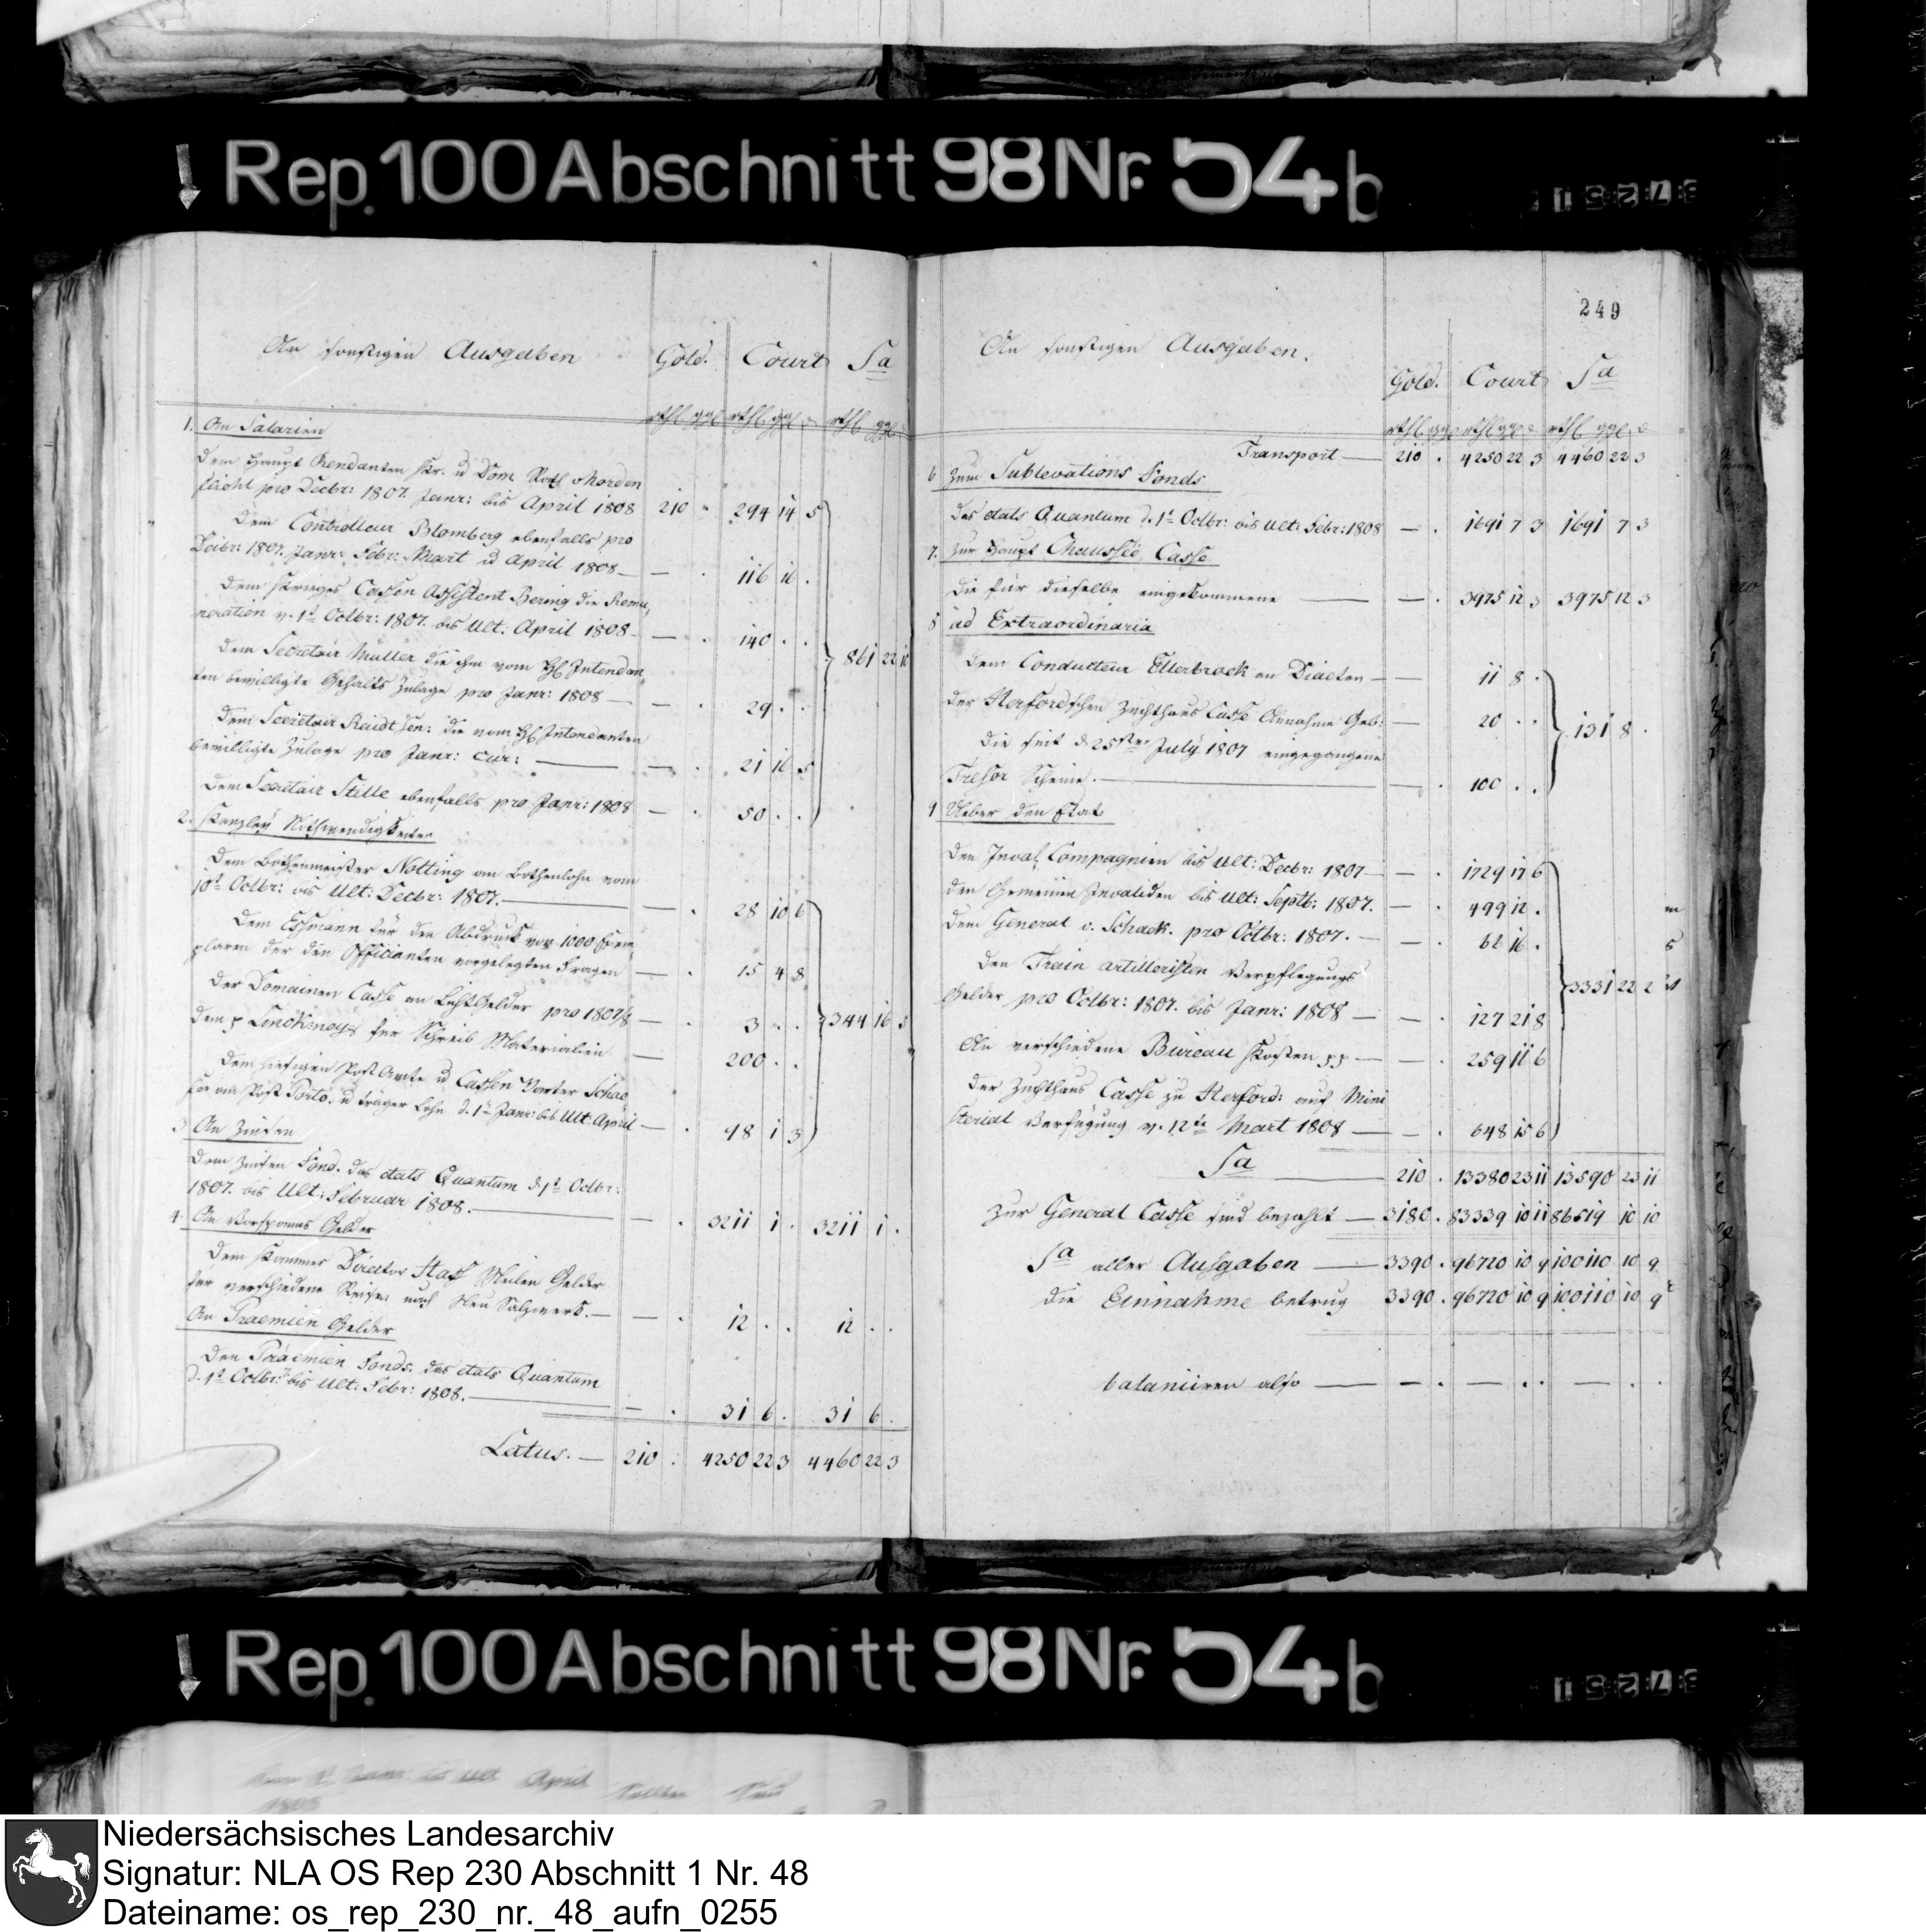 Rep. 100 Abschnitt 98 Nr. 54 b
249
An sonstigen Ausgaben Gold. Court Sa
rthl ggl rthl ggl d rthl ggl d
1. An Salarien
Dem Haupt Rendanten Kr. u Dom Rath
pro Decbr: 1807. Janr: bis April 1808 210 . 294 14 5
Dem Controlleur Blomberg ebenfalls pro
Decbr: 1807. Janr: Febr: Mart u April 1808 — — . 116 16 .
Dem Krieges Cassen Assistent Bering die Remu
neration v. 1t Octbr: 1807. bis Ult. April 1808 — — . 140 . .
861 22 10
Dem Secretair Müller die ihm vom H. Intendan
ten bewilligte Gehalts Zulage pro Janr: 1808 — — . 29 . .
Dem Secretair Reidt sen: die vom H. Intendanten
bewilligte Zulage pro Janr: cur: — — . 21 16 5
Dem Secretair Stille ebenfalls pro Janr: 1808 — . 50 . .
2. Kanzley Nothwendigkeiten
Dem Bothenmeister Notting an Bothenlohn vom
1t Octbr: bis Ult: Decbr: 1807. — — . 28 10 6
Dem Essmann für den Abdruck von 1000 Exem
plaren der den Officianten vorgelegten Fragen — . 15 4 8
Der Domainen Casse an LichtGelder pro 1807/8 — . 3 . .
344 16 5
dem p für Schreib Materialien — 200 . .
Dem hiesigen Post Amte u Cassen Warter Schae
fer an Post Porto. u träger Lohn d. 1t Janr: bis Ult: April — . 98 1 3
3 An Zinsen
Dem Zinsen Fond. das etats Quantum d 1t Octbr:
1807. bis Ult: Februar 1808. — — . 3211 1 . 3211 1 .
4. An Vorspanns Gelder
Dem Kammer Director Hass Meilen Gelder
für verschiedene Reisen nach Neu Salzwerk. — — . 12 . . 12 . .
An Praemien Gelder
Den Praemien Fonds. das etats Quantum
d. 1t Octbr: bis Ult: Febr: 1808. — — . 31 6 . 31 6 .
Latus. — 210 : 4250 22 3 4460 22 3
An sonstigen Ausgaben.
Gold. Court Sa
rthl ggl rthl ggl d rthl ggl d
Transport — 210 . 4250 22 3 4460 22 3
6 Zum Sublevations Fonds
das etats Quantum d. 1t Octbr: bis Ult: Febr: 1808 — . 1691 7 3 1691 7 3
7. Zur Haupt Chaussée Casse
die für dieselbe eingekommene — — . 3975 12 3 3975 12 3
8 ad Extraordinaria
Dem Conducteur Ellerbrock an Diaeten — — 11 8 .
der Herfordschen Zuchthaus Casse Annahme Geb: — 20 . .
131 8 .
Die seit d 25sten July 1807 eingegangene
Tresor Scheine. — — . 100 . .
9 Ueber den Etat
Den Inval Compagnien bis ult: Decbr: 1807 — — . 1729 17 6
den Gemeinen Invaliden bis ult: Septb: 1807. — . 499 12 .
dem General v. Schack. pro Octbr: 1807. — — . 62 16 .
Den Train artilleristen Verpflegungs
3331 22 2
Gelder pro Octbr: 1807. bis Janr: 1808 — — . 127 21 8
An verschiedene Bureau Kosten pp — — . 259 11 6
der Zuchthaus Casse zu Herford: auf Mini
sterial Verfügung v. 12te Mart 1808 — — . 648 15 6
Sa — 210 . 13380 23 11 13590 23 11
Zur General Casse sind bezahlt — 3180 . 83339 10 11 86519 10 10
Sa aller Ausgaben — 3390 . 96720 10 9 100110 10 9
die Einnahme betrug 3390 . 96720 10 9 100110 10 9
balanciren also — — . — . . — . .
Rep. 100 Abschnitt 98 Nr. 54 b
Niedersächsisches Landesarchiv
Signatur: NLA OS Rep 230 Abschnitt 1 Nr. 48
Dateiname: os_rep_230_nr._48_aufn_0255